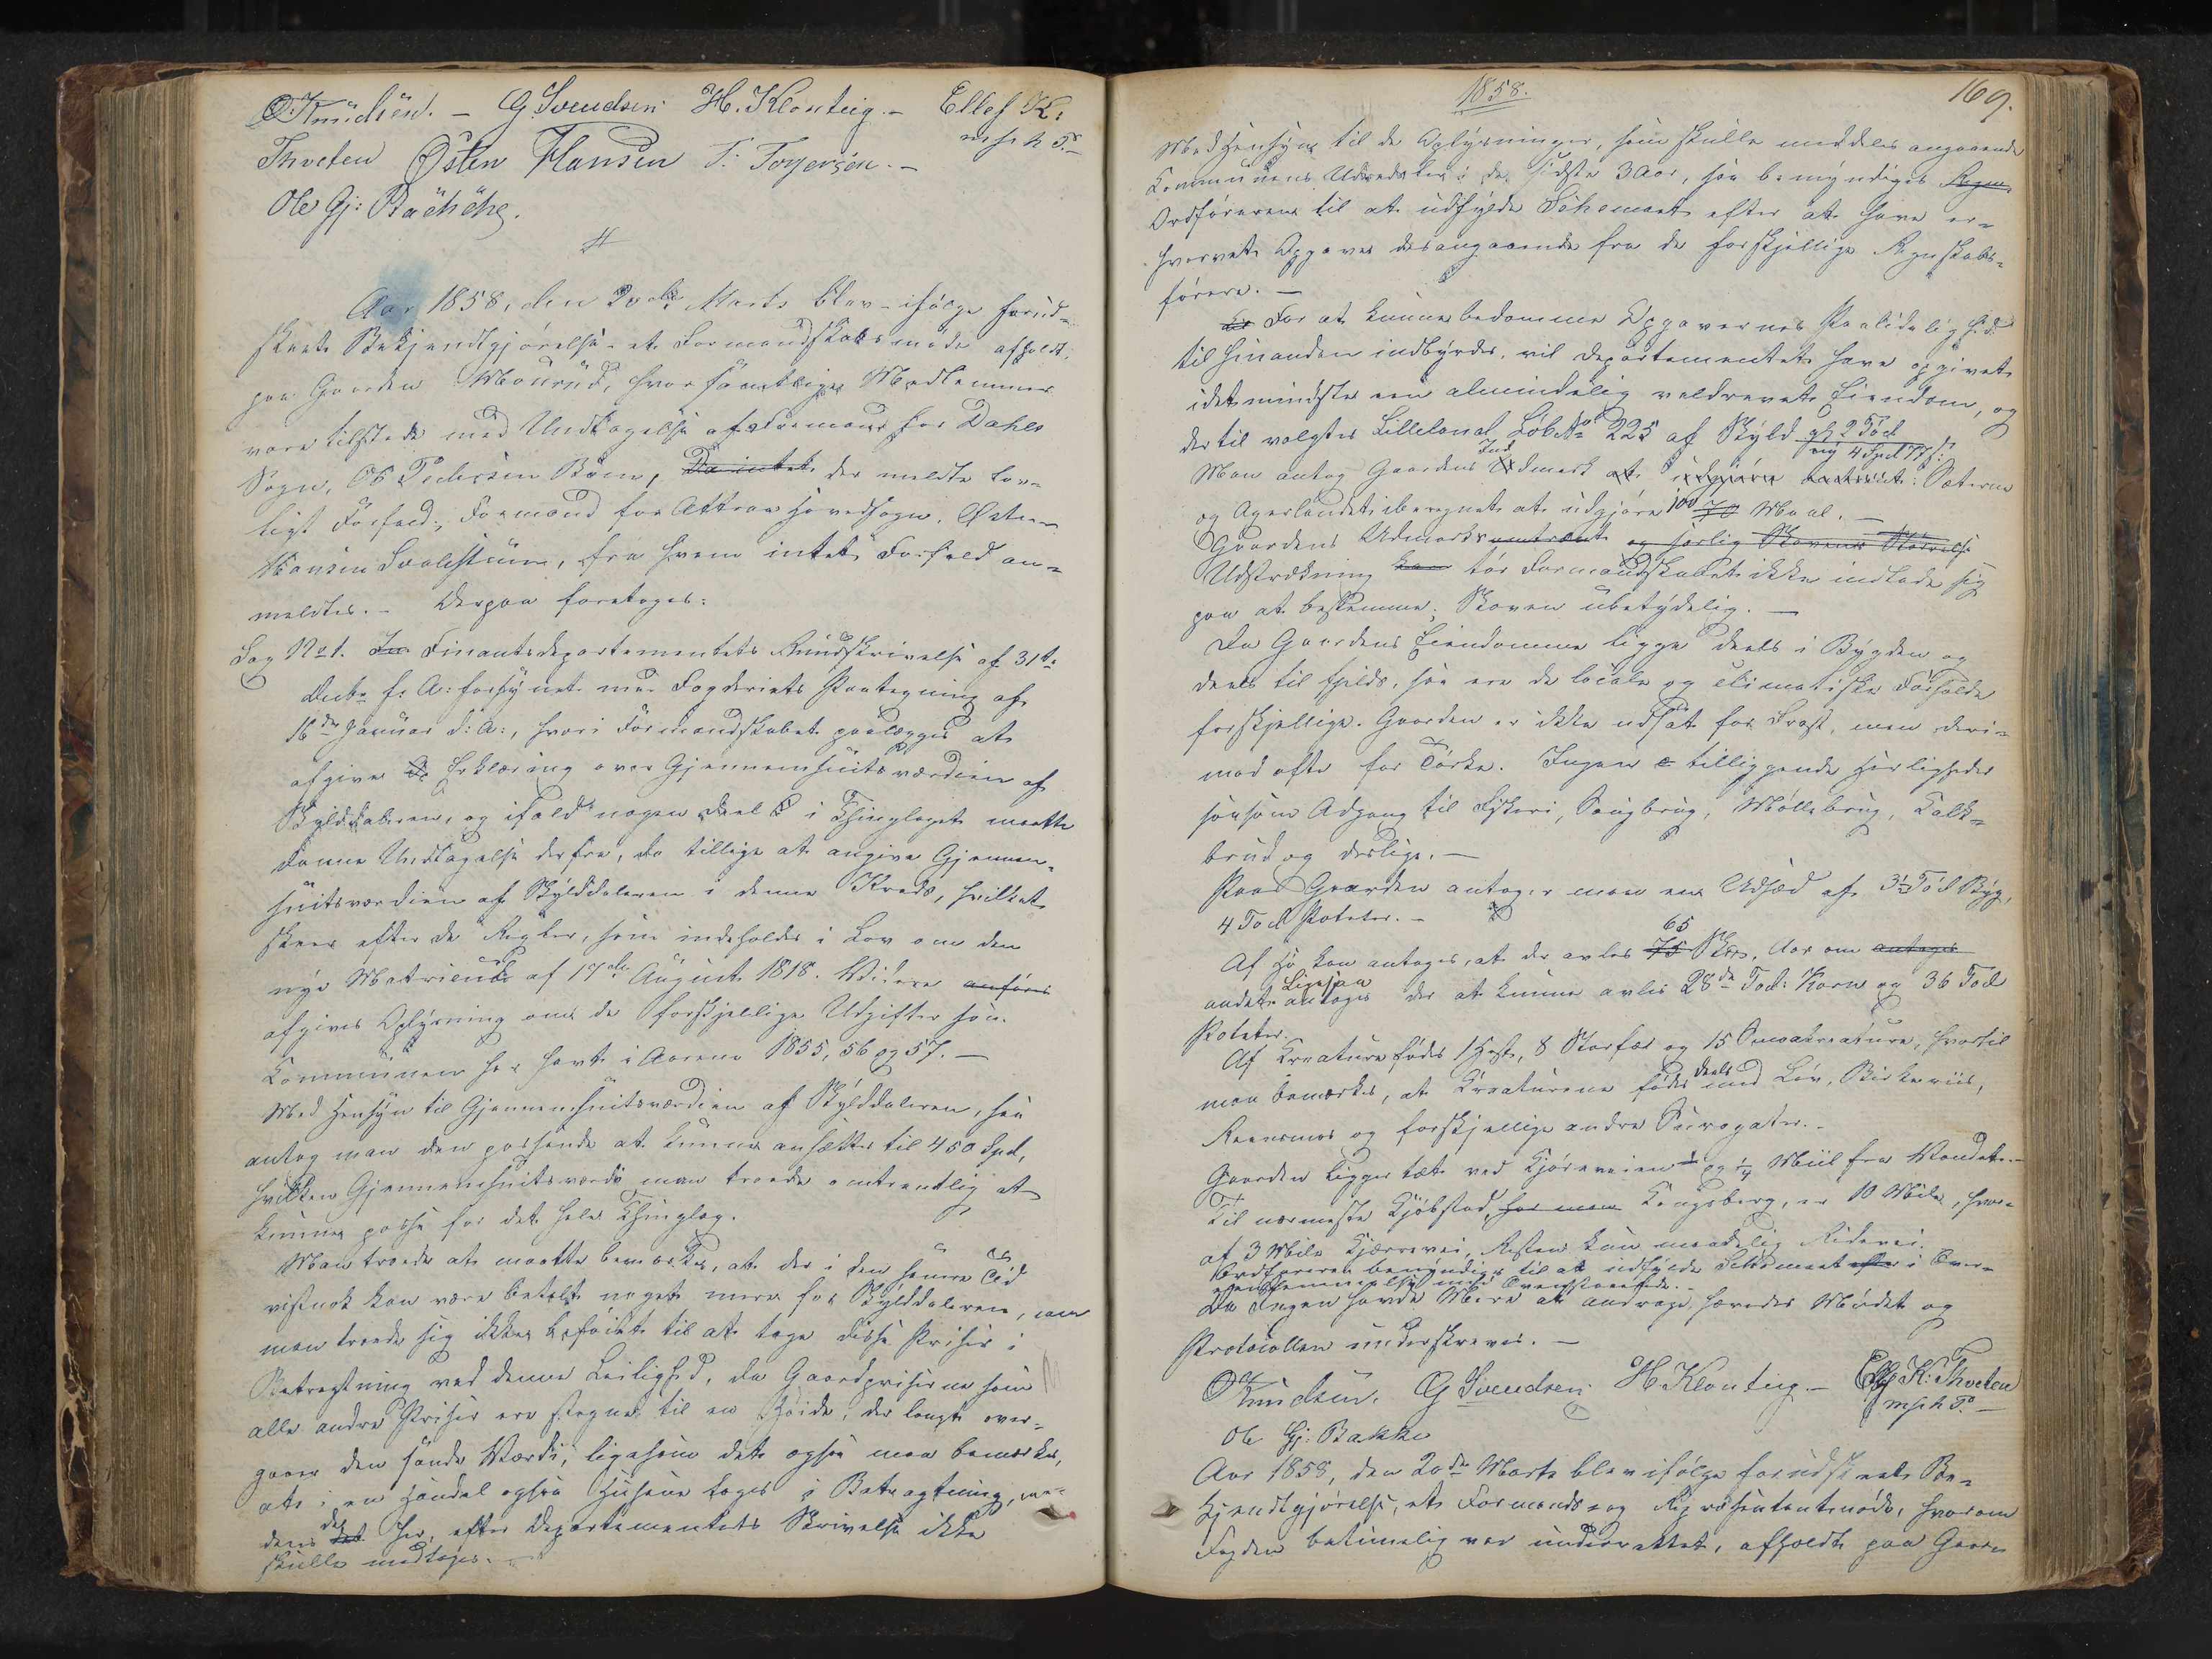 O Knudsen. – G Svendsen H. Klouteig. – Ellef K:
Thveten Østen Hansen T: Torjersen. – m f p P. –
Ole Gj: Bächche.
Aar 1858, den 20de Marts blev – ifølge forud-
skeet Bekjendtgjørelse – et Formandskabsmøde afholdt
paa Gaarden Mourud, hvor samtlige Medlemmer
vare tilstede med Undtagelse af Formand for Dahls
Sogn, Ole Pedersen Bøen, Da intet der meldte lov-
ligt Forfald; Formand for Attraa Hovedsogn, Østen
Hansen Svalestuen, fra hvem intet Forfald an-
meldtes. – Derpaa foretoges:
Sag No 1. Finantsdepartementets Rundskrivelse af 31te
Decbr f: A: forsynet med Fogderiets Paategning af
16de Januar d: A:, hvori Formandskabet paalægges at
afgive Erklæring over Gjennemsnitsværdien af
Skylddaleren, og ifald nogen Deel i Thinglaget maatte
danne Undtagelse derfra, da tillige at angive Gjennem-
snitsværdien af Skylddaleren i denne Kreds, hvilket
skeer efter de Regler, som indeholdes i Lov om den
nye Matricul af 17de August 1818. Videre anføres
afgives Oplysning om de forskjellige Udgifter som
Kommunen har havt i Aarene 1855, 56 og 57. –
Med Hensyn til Gjennemsnitsværdien af Skylddaleren, saa
antog man den passende at kunne ansættes til 450 Spd,
hvilken Gjennemsnitsværdi man troede omtrentlig at
kunne passe for det hele Thinglag.
Man troede at maatte bemærke, at der i den senere Tid
vistnok kan være betalt noget mere for Skylddaleren, men
man troede sig ikke beføiet til at tage disse Priser i
Betragtning ved denne Leilighed, da Gaardpriserne som
alle andre Priser ere stegne til en Høide, der langt over-
gaaer den sande Værdi, ligesom det også maa bemærkes,
at i en Handel også Husene tages i Betragtning, me-
dens det her, efter Departementets Skrivelse ikke
skulle medtages. –
1858.
169.
Med Hensyn til de Oplysninger, som skulle meddeles angaaende
Kommunens Udredsler i de sidste 3 Aar, saa bemyndiges Regn
Ordføreren til at udfylde Schemaet efter at have er-
hvervet Opgaver desangaaende fra de forskjellige Regnskabs-
førere. –
For at kunne bedømme Opgavernes Paalidelighed
til hinanden indbyrdes, vil Departementet have opgivet
idetmindste een almindelig veldrevet Eiendom, og
dertil valgtes Lilleland Løb.No 225 af Skyld 2 Tød
ny 4 Spd 77 s:
Man antog Gaardens Indmark at udgjøre Sæterne
og Agerlandet iberegnet at udgjøre 100 70 Maal. –
Gaardens Udmarks omtrent og særlig Skovens Størrelse
Udstrækning kan tør Formandskabet ikke indlade sig
paa at bestemme; Skoven ubetydelig. –
Da Gaardens Eiendomme ligge deels i Bygden og
deels til Fjelds, saa ere de locale og climatiske Forholde
forskjellige. Gaarden er ikke udsat for Frost, men deri-
mod ofte for Tørke. Ingen tilliggende Herligheder
saasom Adgang til Fiskeri, Saugbrug, Møllebrug, Kalk-
brud og deslige. –
Paa Gaarden antager man en Udsæd af 3½ Tød Byg,
4 Tød Poteter. –
Af Hø kan antages, at der avles 75 65 Aar om antages
andet Ligesaa antages der at kunne avles 28de Tød: Korn og 36 Tød
Poteter.
Af Kreature fødes 1 Hest, 8 Storfæ og 15 Smaakreature, hvortil
maa bemærkes, at Kreaturene fødes deels med Løv, Birkeriis,
Reensmos og forskjellige andre Surogater. –
Gaarden ligger tæt ved Kjøreveien og ¼ Miil fra Vandet. –
Til nærmeste Kjøbstad, har man Kongsberg, er 10 Mile, hvor-
af 3 Mile Kjærrevei, Resten kun maadelig Ridevei.
Ordføreren bemyndiges til at udfylde Schemaet efter i Over-
ensstemmelse med Ovenstaaende. –
Da Ingen havde Mere at andrage, hævedes Mødet og
Protocollen underskreves. –
O Knudsen. G Svendsen. H Klouteig. – Ellef K: Thveten
m f p P. –
Ole Gj: Bakke
Aar 1858, den 20de Marts blev ifølge forudskeet Be-
kjendtgjørelse, et Formands- og Repræsentantmøde, hvorom
Fogden betimelig var underrettet, afholdt paa Gaar-